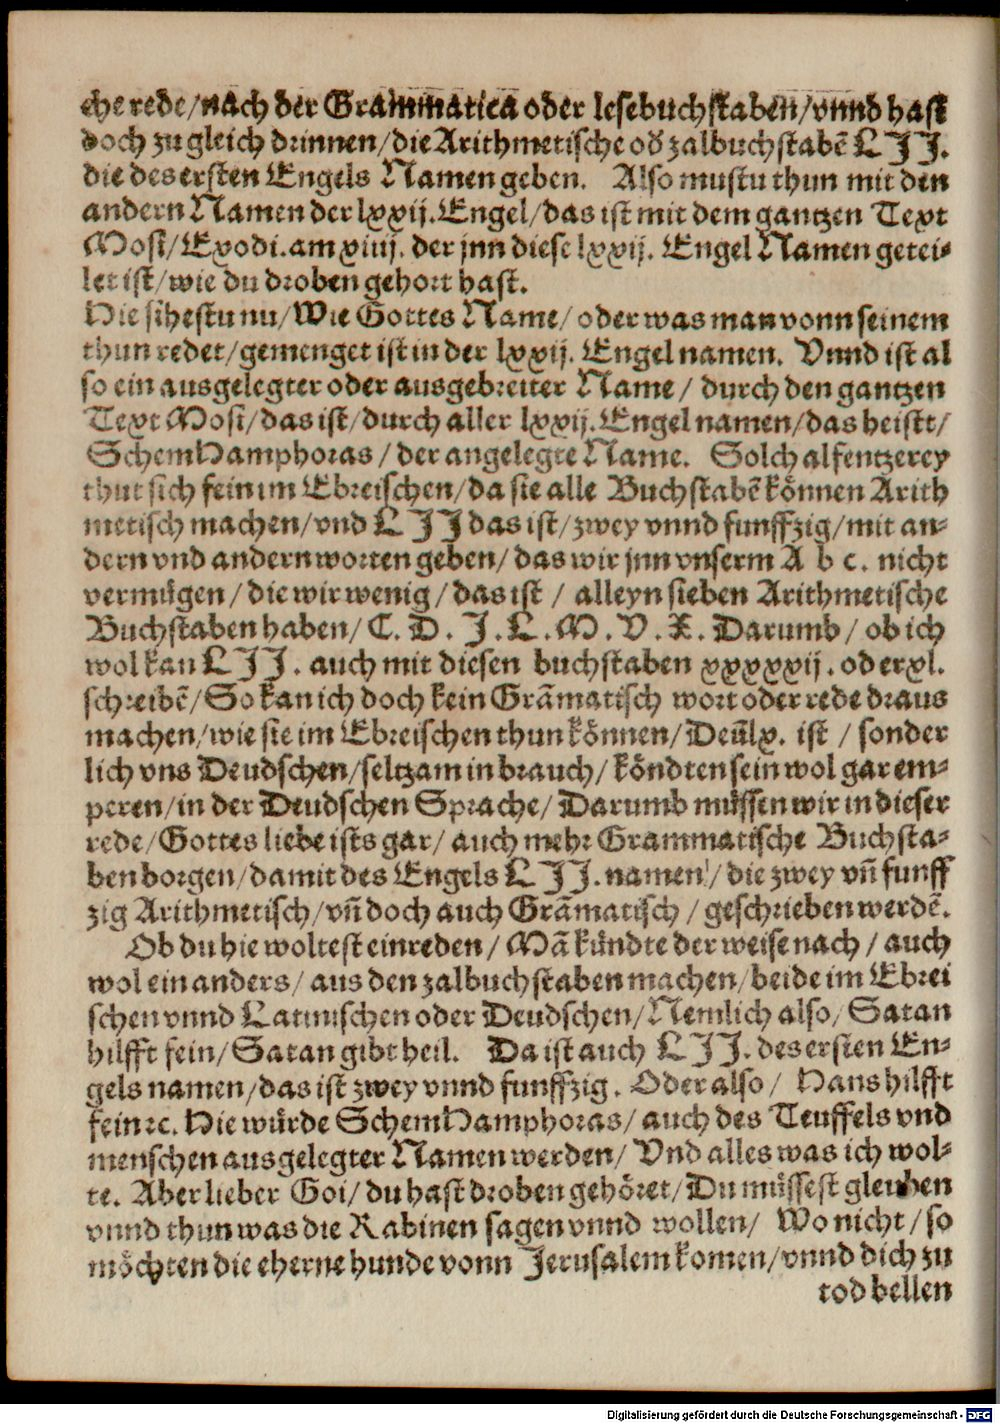 che rede/nach der Grammatica oder lesebuchstaben/vnnd hast
doch zu gleich drinnen/die Arithmetische od̕ zalbuchstabē LJJ.
die des ersten Engels Namen geben. Also mustu thun mit den
andern Namen der lxxij. Engel/das ist mit dem gantzen Text
Mosi/Exodi. am xiiij. der jnn diese lxxij. Engel Namen getei-
let ist/wie du droben gehort hast.
Hie sihestu nu/Wie Gottes Name/oder was man vonn seinem
thun redet/gemenget ist in der lxxij. Engel namen. Vnnd ist al
so ein ausgelegter oder ausgebreiter Name/ durch den gantzen
Text Mosi/das ist/durch aller lxxij. Engel namen/das heistt/
SchemHamphoras/der angelegte Name. Solch alfentzerey
thut sich fein im Ebreischen/da sie alle Buchstabē können Arith
metisch machen/vnd LJJ das ist/zwey vnnd funffzig/mit an-
dern vnd andern worten geben/das wir jnn vnserm A b c. nicht
vermügen/die wir wenig/das ist/ alleyn sieben Arithmetische
Buchstaben haben/C. D. J. L. M. V. X. Darumb/ob ich
wol kan LJJ. auch mit diesen buchstaben xxxxxij. oder xl.
schreibē/So kan ich doch kein Grāmatisch wort oder rede draus
machen/wie sie im Ebreischen thun können/Deñ lx. ist / sonder
lich vns Deudschen/seltzam in brauch/köndten sein wol gar em-
peren/in der Deudschen Sprache/Darumb müssen wir in dieser
rede/Gottes liebe ists gar/auch mehr Grammatische Buchsta-
ben borgen/damit des Engels LJJ. namen/die zwey vñ funff
zig Arithmetisch/vñ doch auch Grāmatisch/geschrieben werdē.
Ob du hie woltest einreden/ Mā kündte der weise nach/auch
wol ein anders/aus den zalbuchstaben machen/beide im Ebrei
schen vnnd Latinischen oder Deudschen/Nemlich also/Satan
hilfft fein/Satan gibt heil. Da ist auch LJJ. des ersten En-
gels namen/das ist zwey vnnd funffzig. Oder also/ Hans hilfft
fein ꝛc. Hie würde SchemHamphoras/auch des Teuffels vnd
menschen ausgelegter Namen werden/ Vnd alles was ich wol-
te. Aber lieber Goi/du hast droben gehöret/Du müssest gleuben
vnnd thun was die Rabinen sagen vnnd wollen/ Wo nicht/so
möchten die eherne hunde vonn Jerusalem komen/vnnd dich zu
tod bellen
Digitalisierung gefördert durch die Deutsche Forschungsgemeinschaft - DFG